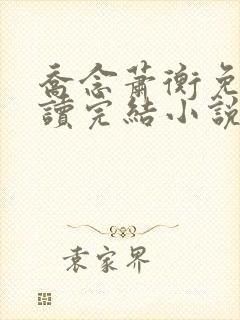 喬念蕭衡免
讀完結小說
袁家界